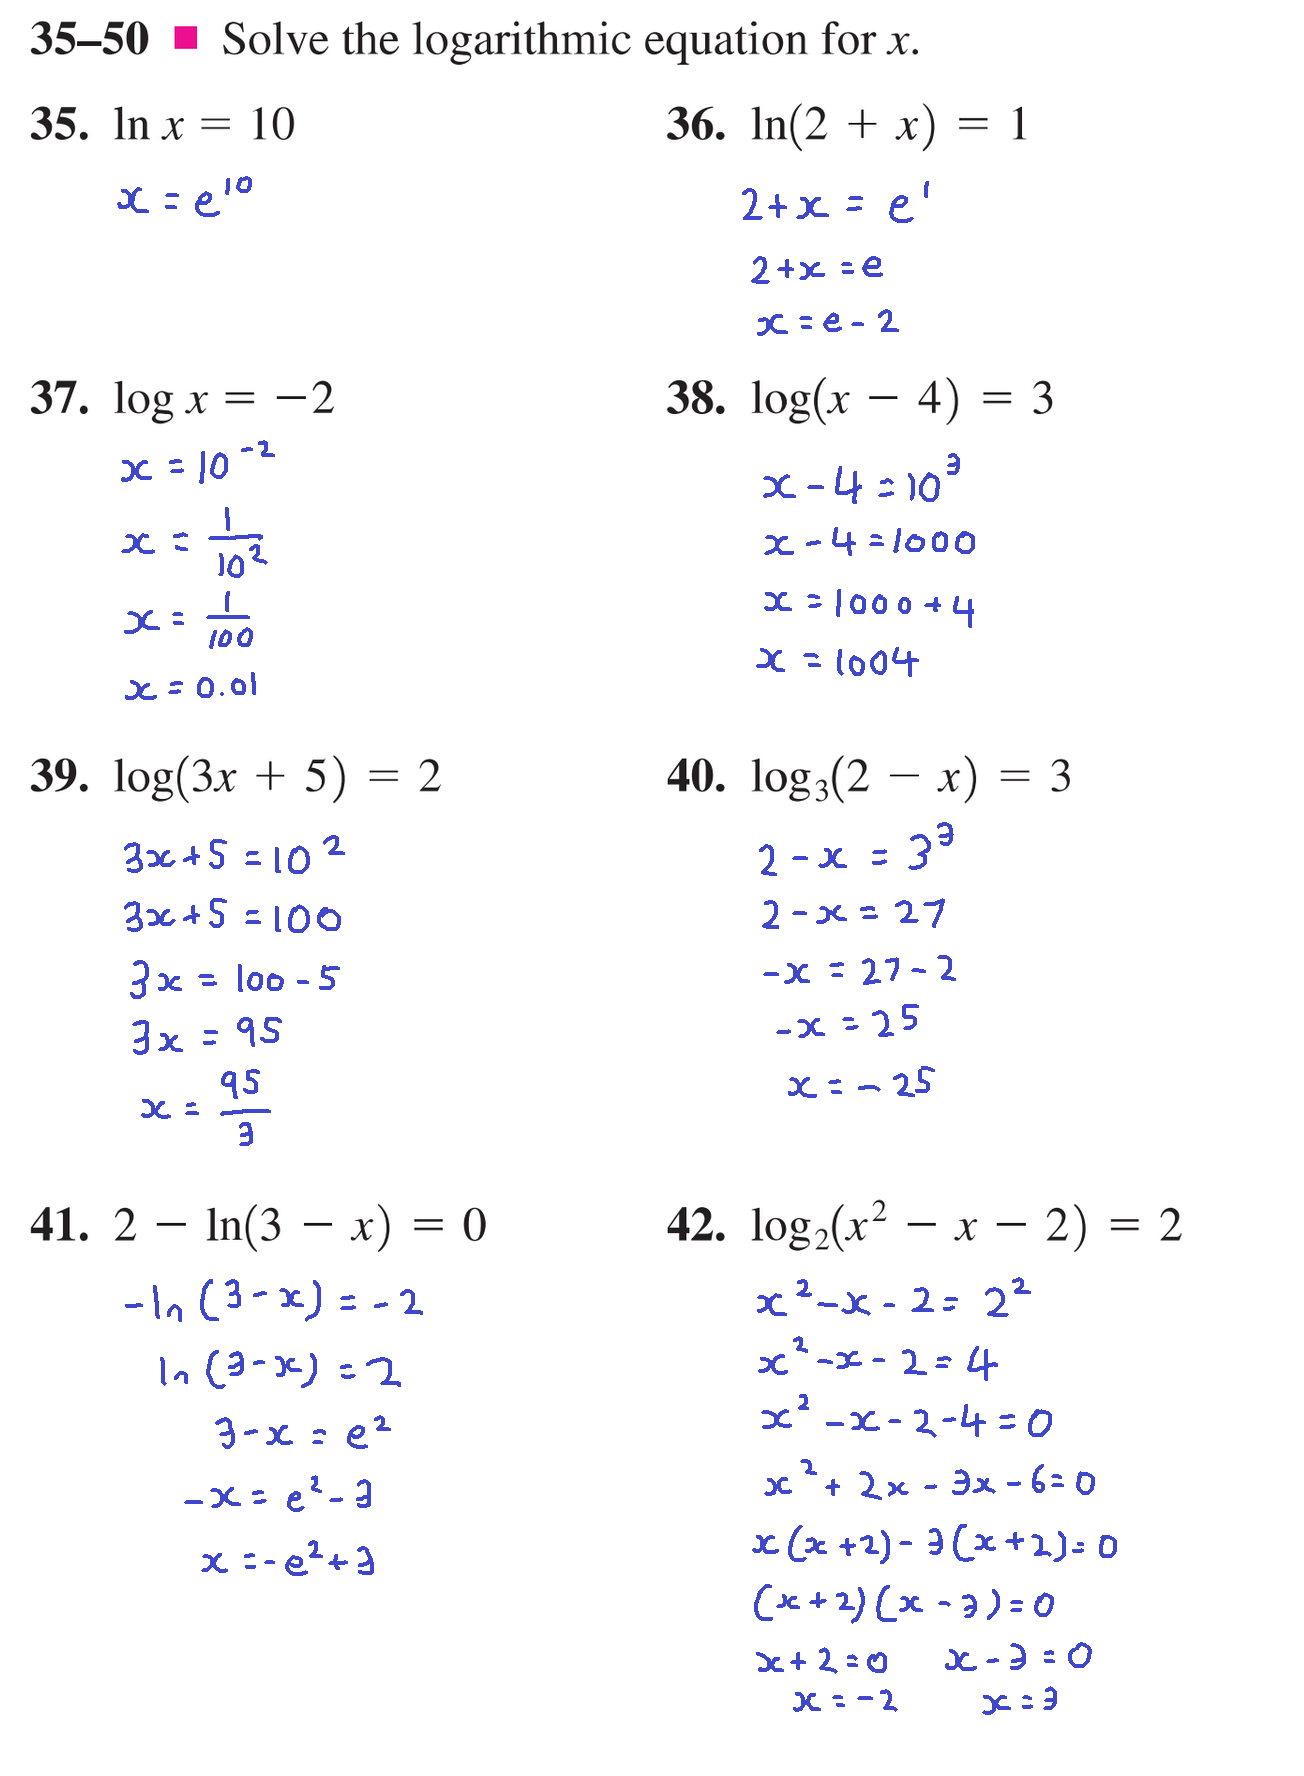 35–50 ■ Solve the logarithmic equation for x.
35. ln x = 10
x = e¹⁰
36. ln(2 + x) = 1
2+x = e¹
2+x = e
x = e - 2
37. log x = −2
x = 10⁻²
x = 1/10²
x = 1/100
x = 0.01
38. log(x − 4) = 3
x - 4 = 10³
x - 4 = 1000
x = 1000 + 4
x = 1004
39. log(3x + 5) = 2
3x+5 = 10²
3x+5 = 100
3x = 100 - 5
3x = 95
x = 95/3
40. log₃(2 − x) = 3
2 - x = 3³
2 - x = 27
-x = 27 - 2
-x = 25
x = - 25
41. 2 − ln(3 − x) = 0
-ln (3 - x) = -2
ln (3 - x) = 2
3 - x = e²
-x = e² - 3
x = -e² + 3
42. log₂(x² − x − 2) = 2
x² - x - 2 = 2²
x² - x - 2 = 4
x² - x - 2 - 4 = 0
x² + 2x - 3x - 6 = 0
x (x + 2) - 3 (x + 2) = 0
(x + 2) (x - 3) = 0
x + 2 = 0 x - 3 = 0
x = -2 x = 3